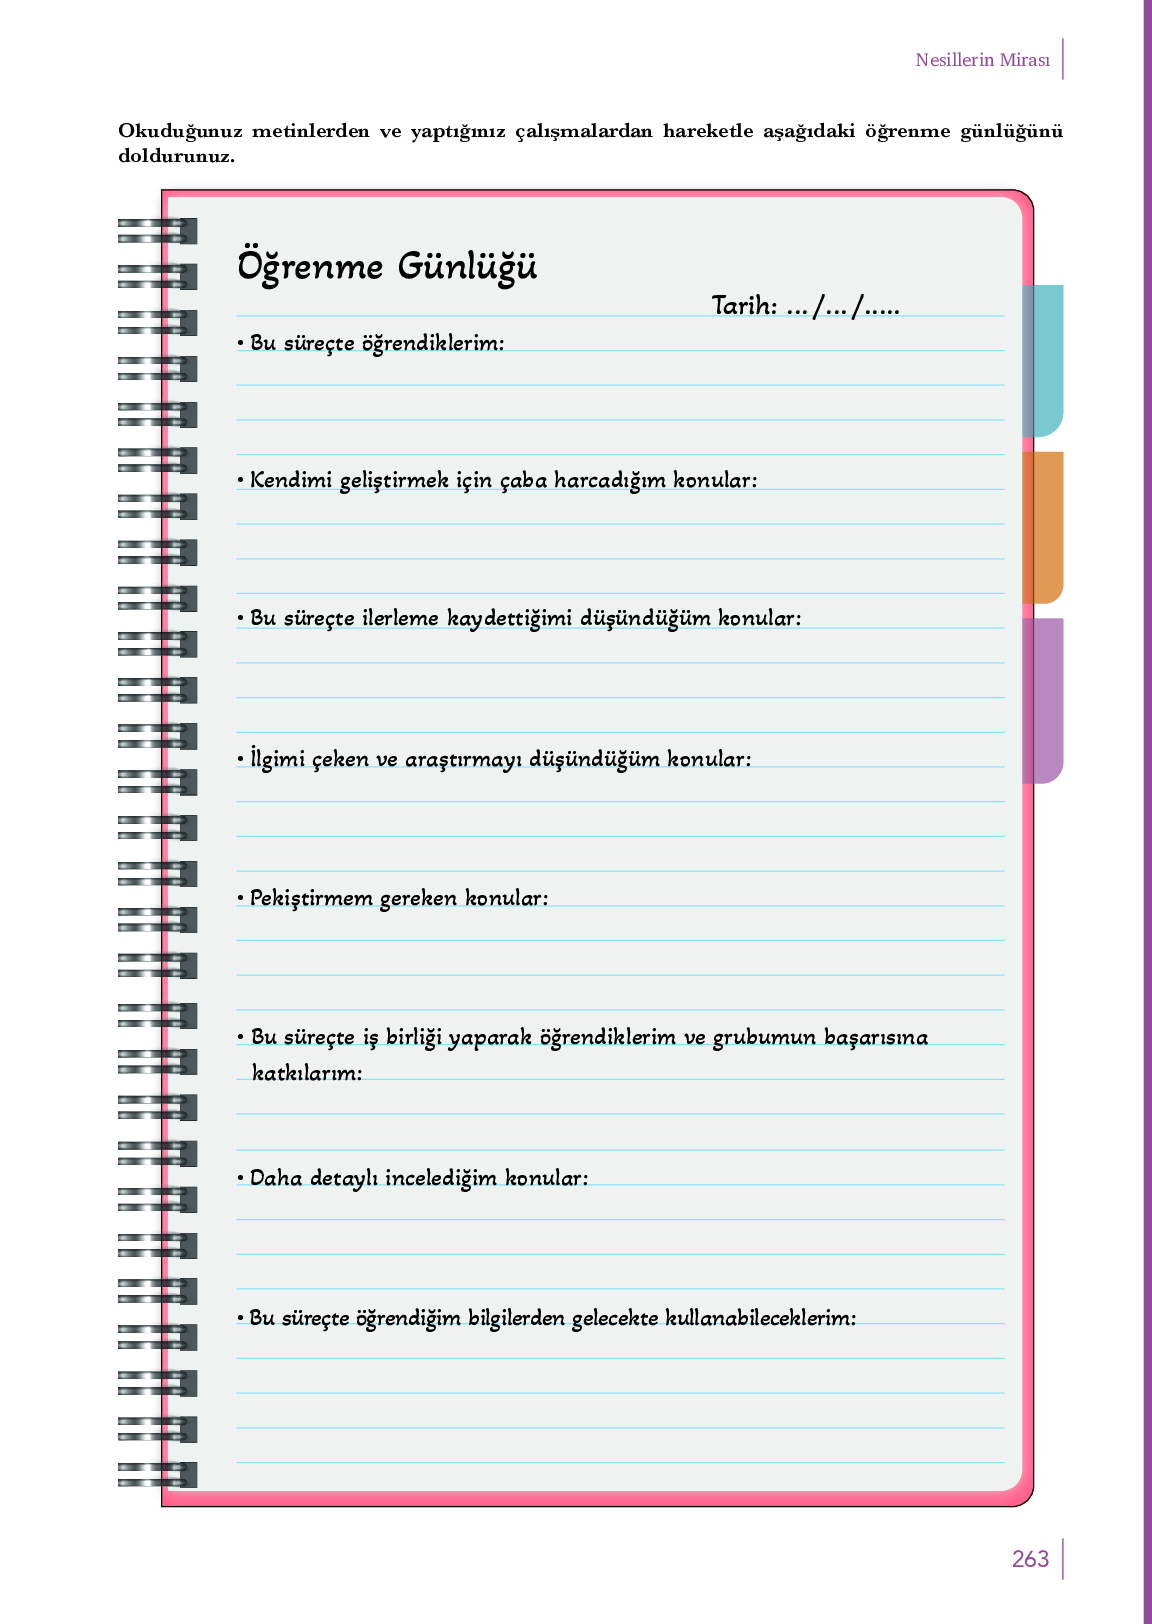 Nesillerin Mirası
Okuduğunuz metinlerden ve yaptığınız çalışmalardan hareketle aşağıdaki öğrenme günlüğünü
doldurunuz.
Öğrenme Günlüğü
Tarih: .../.../.....
• Bu süreçte öğrendiklerim:
• Kendimi geliştirmek için çaba harcadığım konular:
• Bu süreçte ilerleme kaydettiğimi düşündüğüm konular:
• İlgimi çeken ve araştırmayı düşündüğüm konular:
• Pekiştirmem gereken konular:
• Bu süreçte iş birliği yaparak öğrendiklerim ve grubumun başarısına
katkılarım:
• Daha detaylı incelediğim konular:
• Bu süreçte öğrendiğim bilgilerden gelecekte kullanabileceklerim:
263